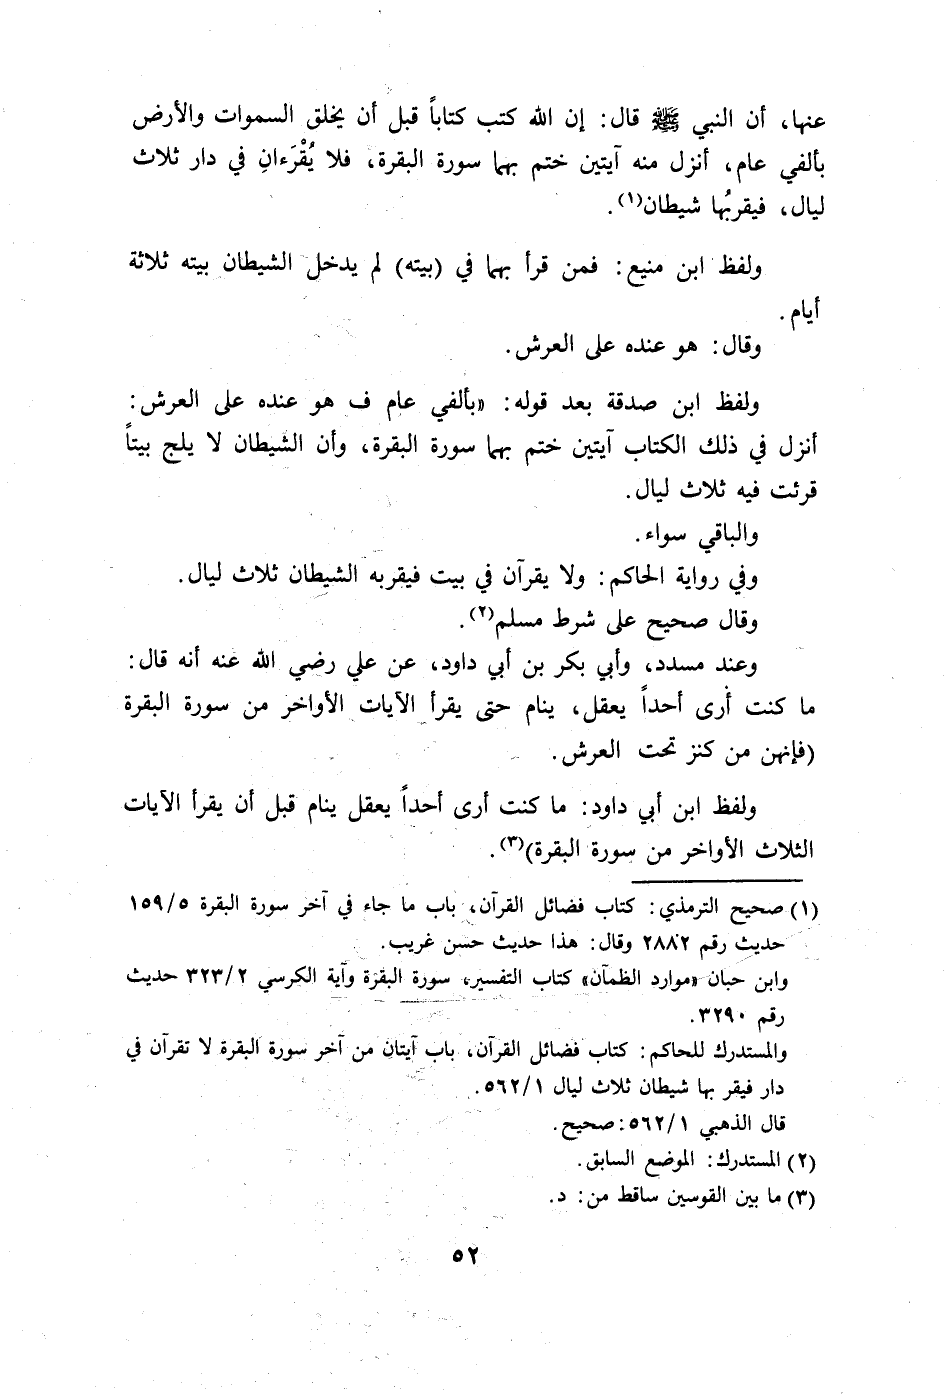 عنها، أن النبي ﷺ قال: إن الله كتب كتاباً قبل أن يخلق السموات والأرض
بألفي عام، أنزل منه آيتين ختم بهما سورة البقرة، فلا يُقْرَءانِ في دار ثلاث
ليال، فيقربُها شيطان(١).
ولفظ ابن منيع: فمن قرأ بهما في (بيته) لم يدخل الشيطان بيته ثلاثة
أيام.
وقال: هو عنده على العرش.
ولفظ ابن صدقة بعد قوله: «بألفي عام ف هو عنده على العرش:
أنزل في ذلك الكتاب آيتين ختم بهما سورة البقرة، وأن الشيطان لا يلج بيتاً
قرئت فيه ثلاث ليال.
والباقي سواء.
وفي رواية الحاكم: ولا يقرآن في بيت فيقربه الشيطان ثلاث ليال.
وقال صحيح على شرط مسلم(٢).
وعند مسدد، وأبي بكر بن أبي داود، عن علي رضي الله عنه أنه قال:
ما كنت أرى أحداً يعقل، ينام حتى يقرأ الآيات الأواخر من سورة البقرة
(فإنهن من كنز تحت العرش.
ولفظ ابن أبي داود: ما كنت أرى أحداً يعقل ينام قبل أن يقرأ الآيات
الثلاث الأواخر من سورة البقرة)(٣).
(١) صحيح الترمذي: كتاب فضائل القرآن، باب ما جاء في آخر سورة البقرة ١٥٩/٥
حديث رقم ٢٨٨٢ وقال: هذا حديث حسن غريب.
وابن حبان «موارد الظمآن» كتاب التفسير، سورة البقرة وآية الكرسي ٣٢٣/٢ حديث
رقم ٣٢٩٠.
والمستدرك للحاكم: كتاب فضائل القرآن، باب آيتان من آخر سورة البقرة لا تقرآن في
دار فيقر بها شيطان ثلاث ليال ٥٦٢/١.
قال الذهبي ٥٦٢/١: صحيح.
(٢) المستدرك: الموضع السابق.
(٣) ما بين القوسين ساقط من: د.
٥٢